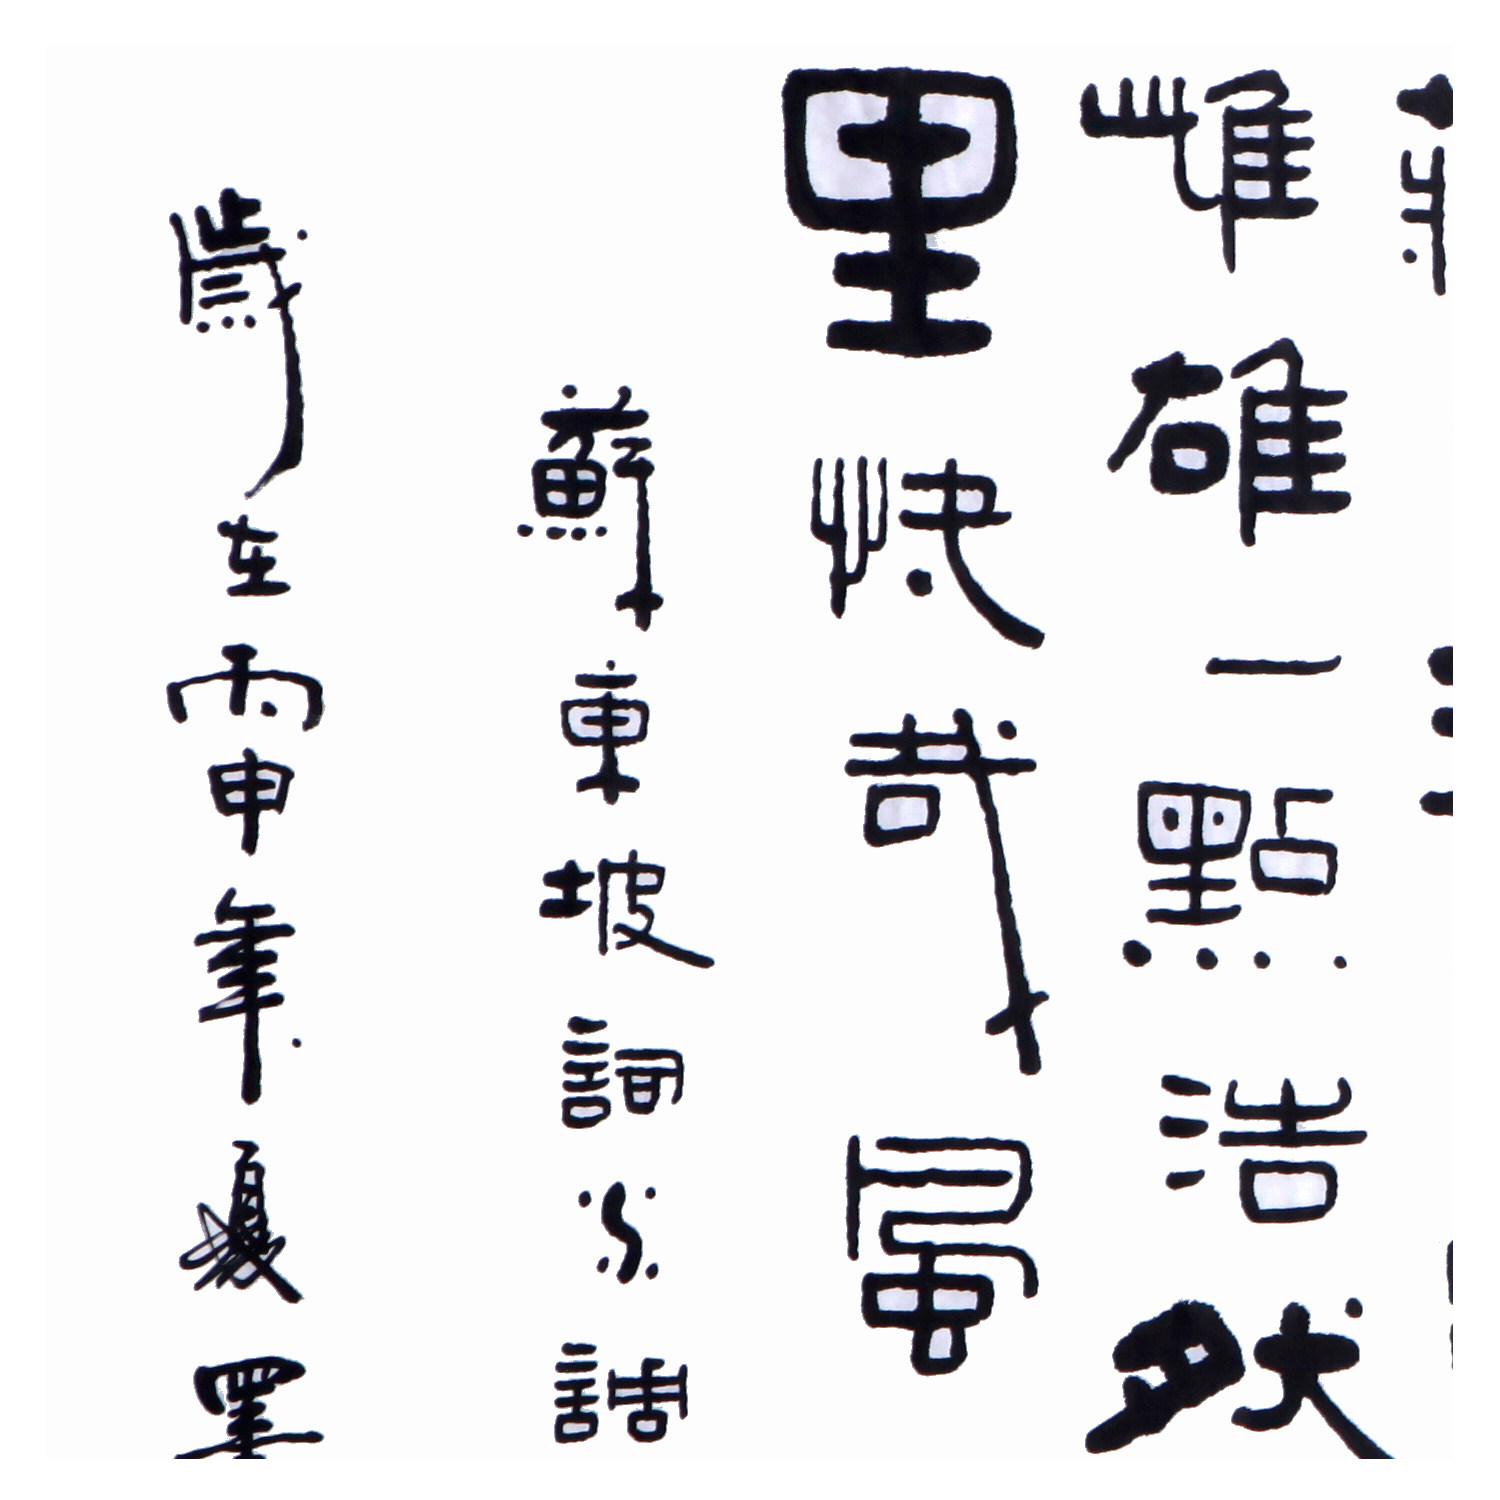 雌雄一點浩然
里快哉風
蘇東坡詞水調
歲在丙申年夏